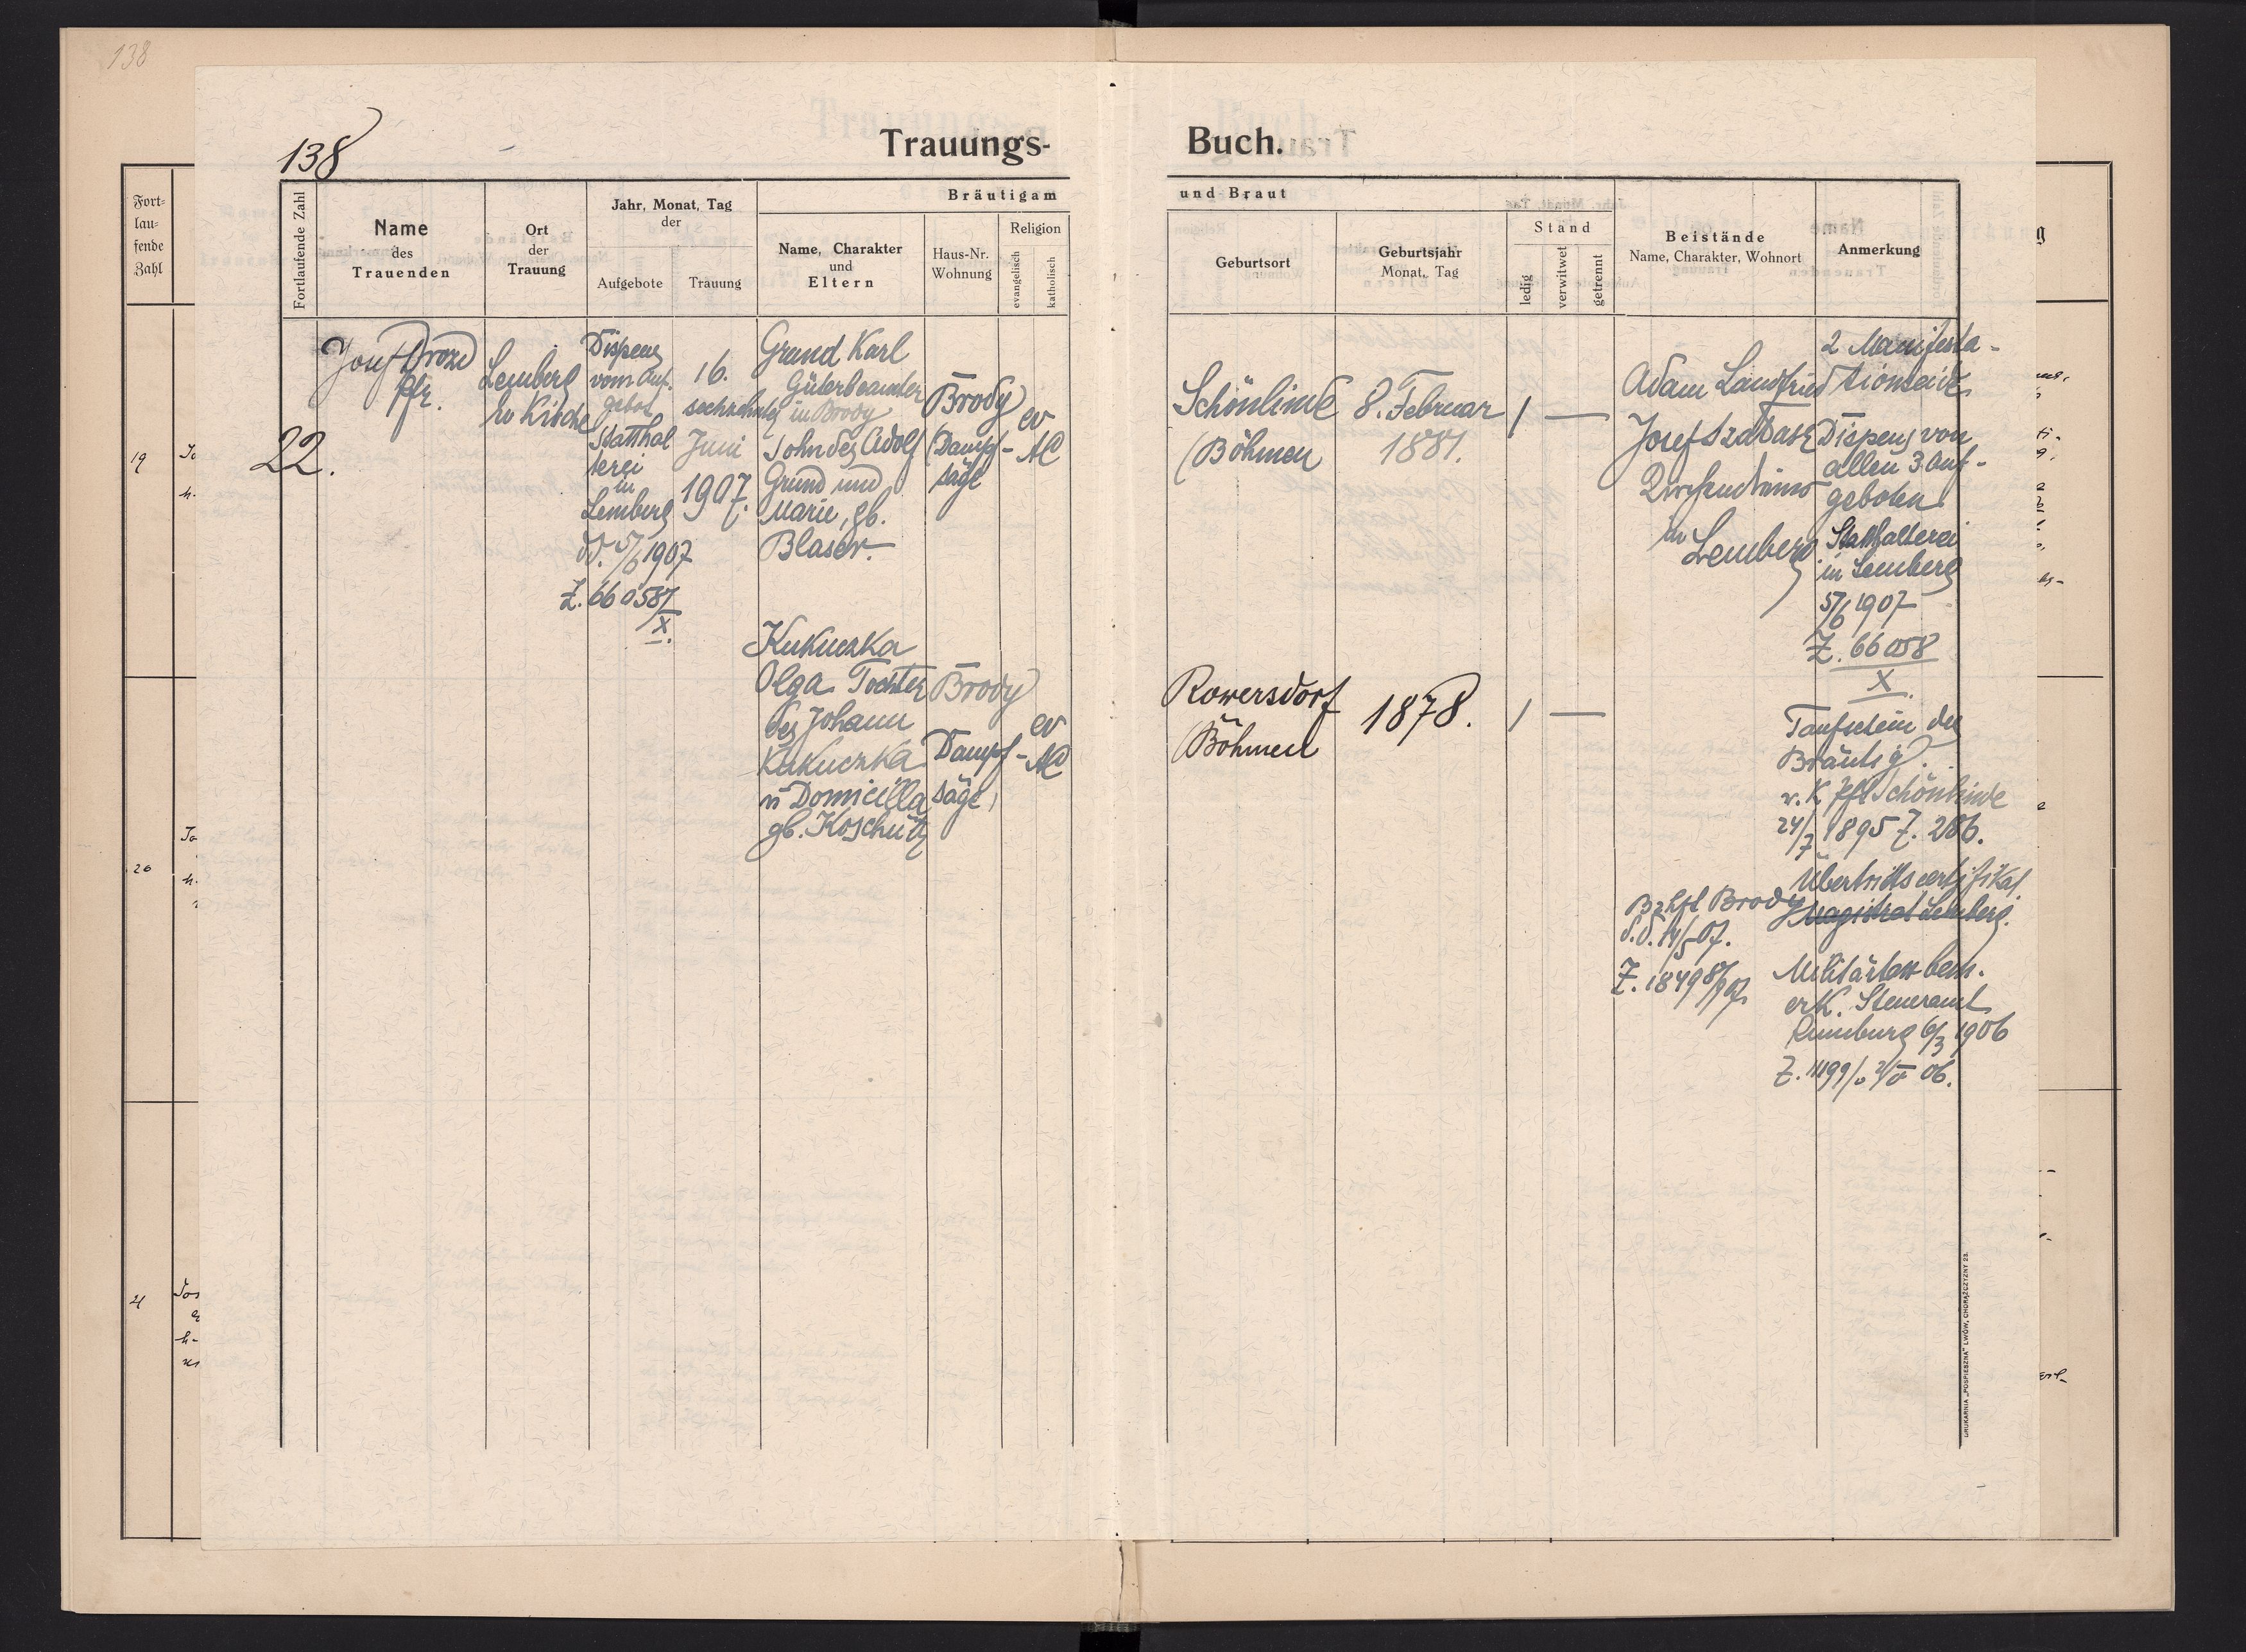 138
138
Trauungs-
Buch.
Fortlaufende Zahl
Name
des
Trauenden
Ort
der
Trauung
Jahr, Monat, Tag
der
Aufgebote
Trauung
Bräutigam
Name, Charakter
und
Eltern
Haus-Nr.
Wohnung
Religion
evangelisch
katholisch
und Braut
Geburtsort
Geburtsjahr
Monat, Tag
Stand
ledig
verwitwet
getrennt
Beistände
Name, Charakter, Wohnort
Anmerkung
Fort-
lau-
fende
Zahl
19
20
21
22.
Josef Drozd
Pfr.
Lemberg
Kirche
Dispens
vom Auf-
gebot
Statthal
terei
in
Lemberg
dd. 5/6 1907
Z. 66058/
X.
16.
sechzehnten
Juni
1907.
Grund Karl
Güterbeamter
in Brody
Sohn des Adolf
Grund und
Marie, gb.
Blaser.
Brody
(Dampf-
säge
ev
AC
Schönlinde
(Böhmen
8. Februar
1881.
/ —
Adam Landfried
Josef
in
Lemberg
2 Manifesta-
tionseide
Dispens von
allen 3 Auf-
geboten
Statthalterei
in Lemberg
5/6 1907
Z. 66058
X.
Kukuczka
Olga Tochter
des Johann
Kukuczka
u Domicilla
gb. Koschütz
Brody
Dampf-
säge,
ev
AC
Rowersdorf
Böhmen
1878.
/ —
Taufschein des
Bräutig.
r. K. Pf Schönlinde
24/7 1895 Z. 286.
Übertrittscertifikat
Magistrat Lemberg.
Bzhft Brody
d.d. 14/5 07.
Z. 18498/907
Militärtax bem.
k. Steueramt
Rumburg 6/3 1906
DRUKARNIA „POSPIESZNA" LWÓW, CHORĄŻCZYZNY 23.